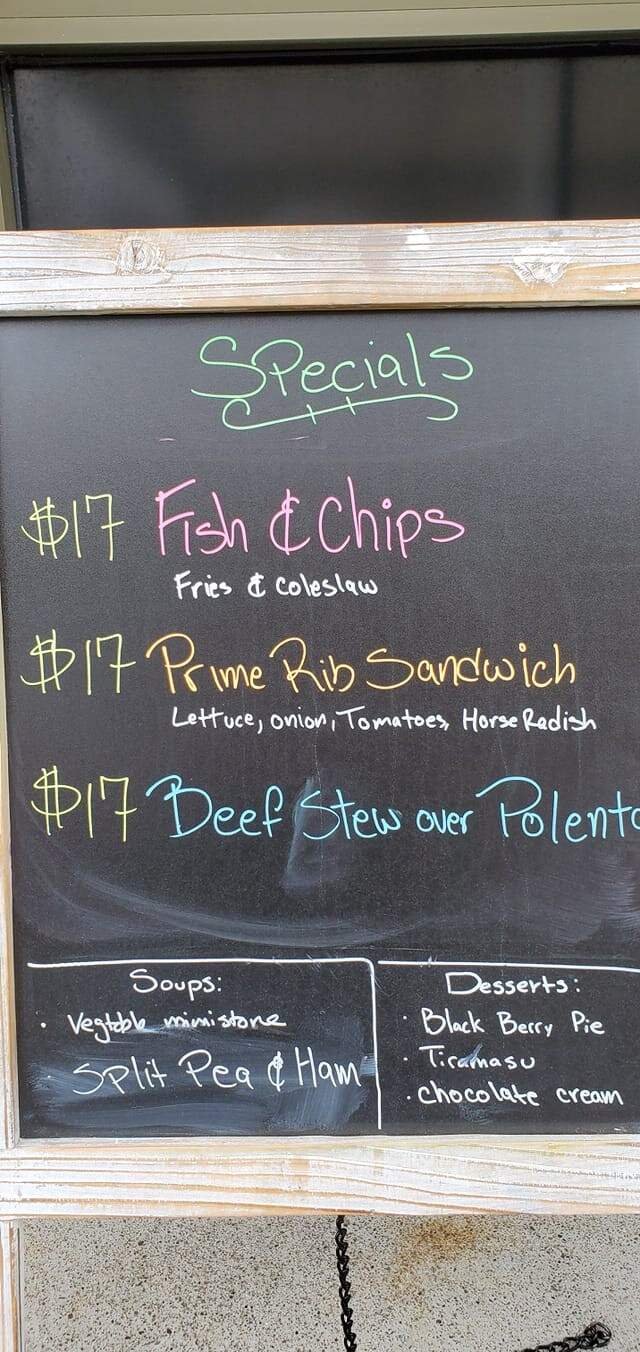 Specials
$17 Fish & Chips
Fries & Coleslaw
$17 Prime Rib Sandwich
Lettuce, onion, Tomatoes, Horse Radish
$17 Beef Stew over Polenta
Soups:
· Vegtable mimistone
· Split Pea & Ham
Desserts:
· Black Berry Pie
· Tiramasu
· chocolate cream